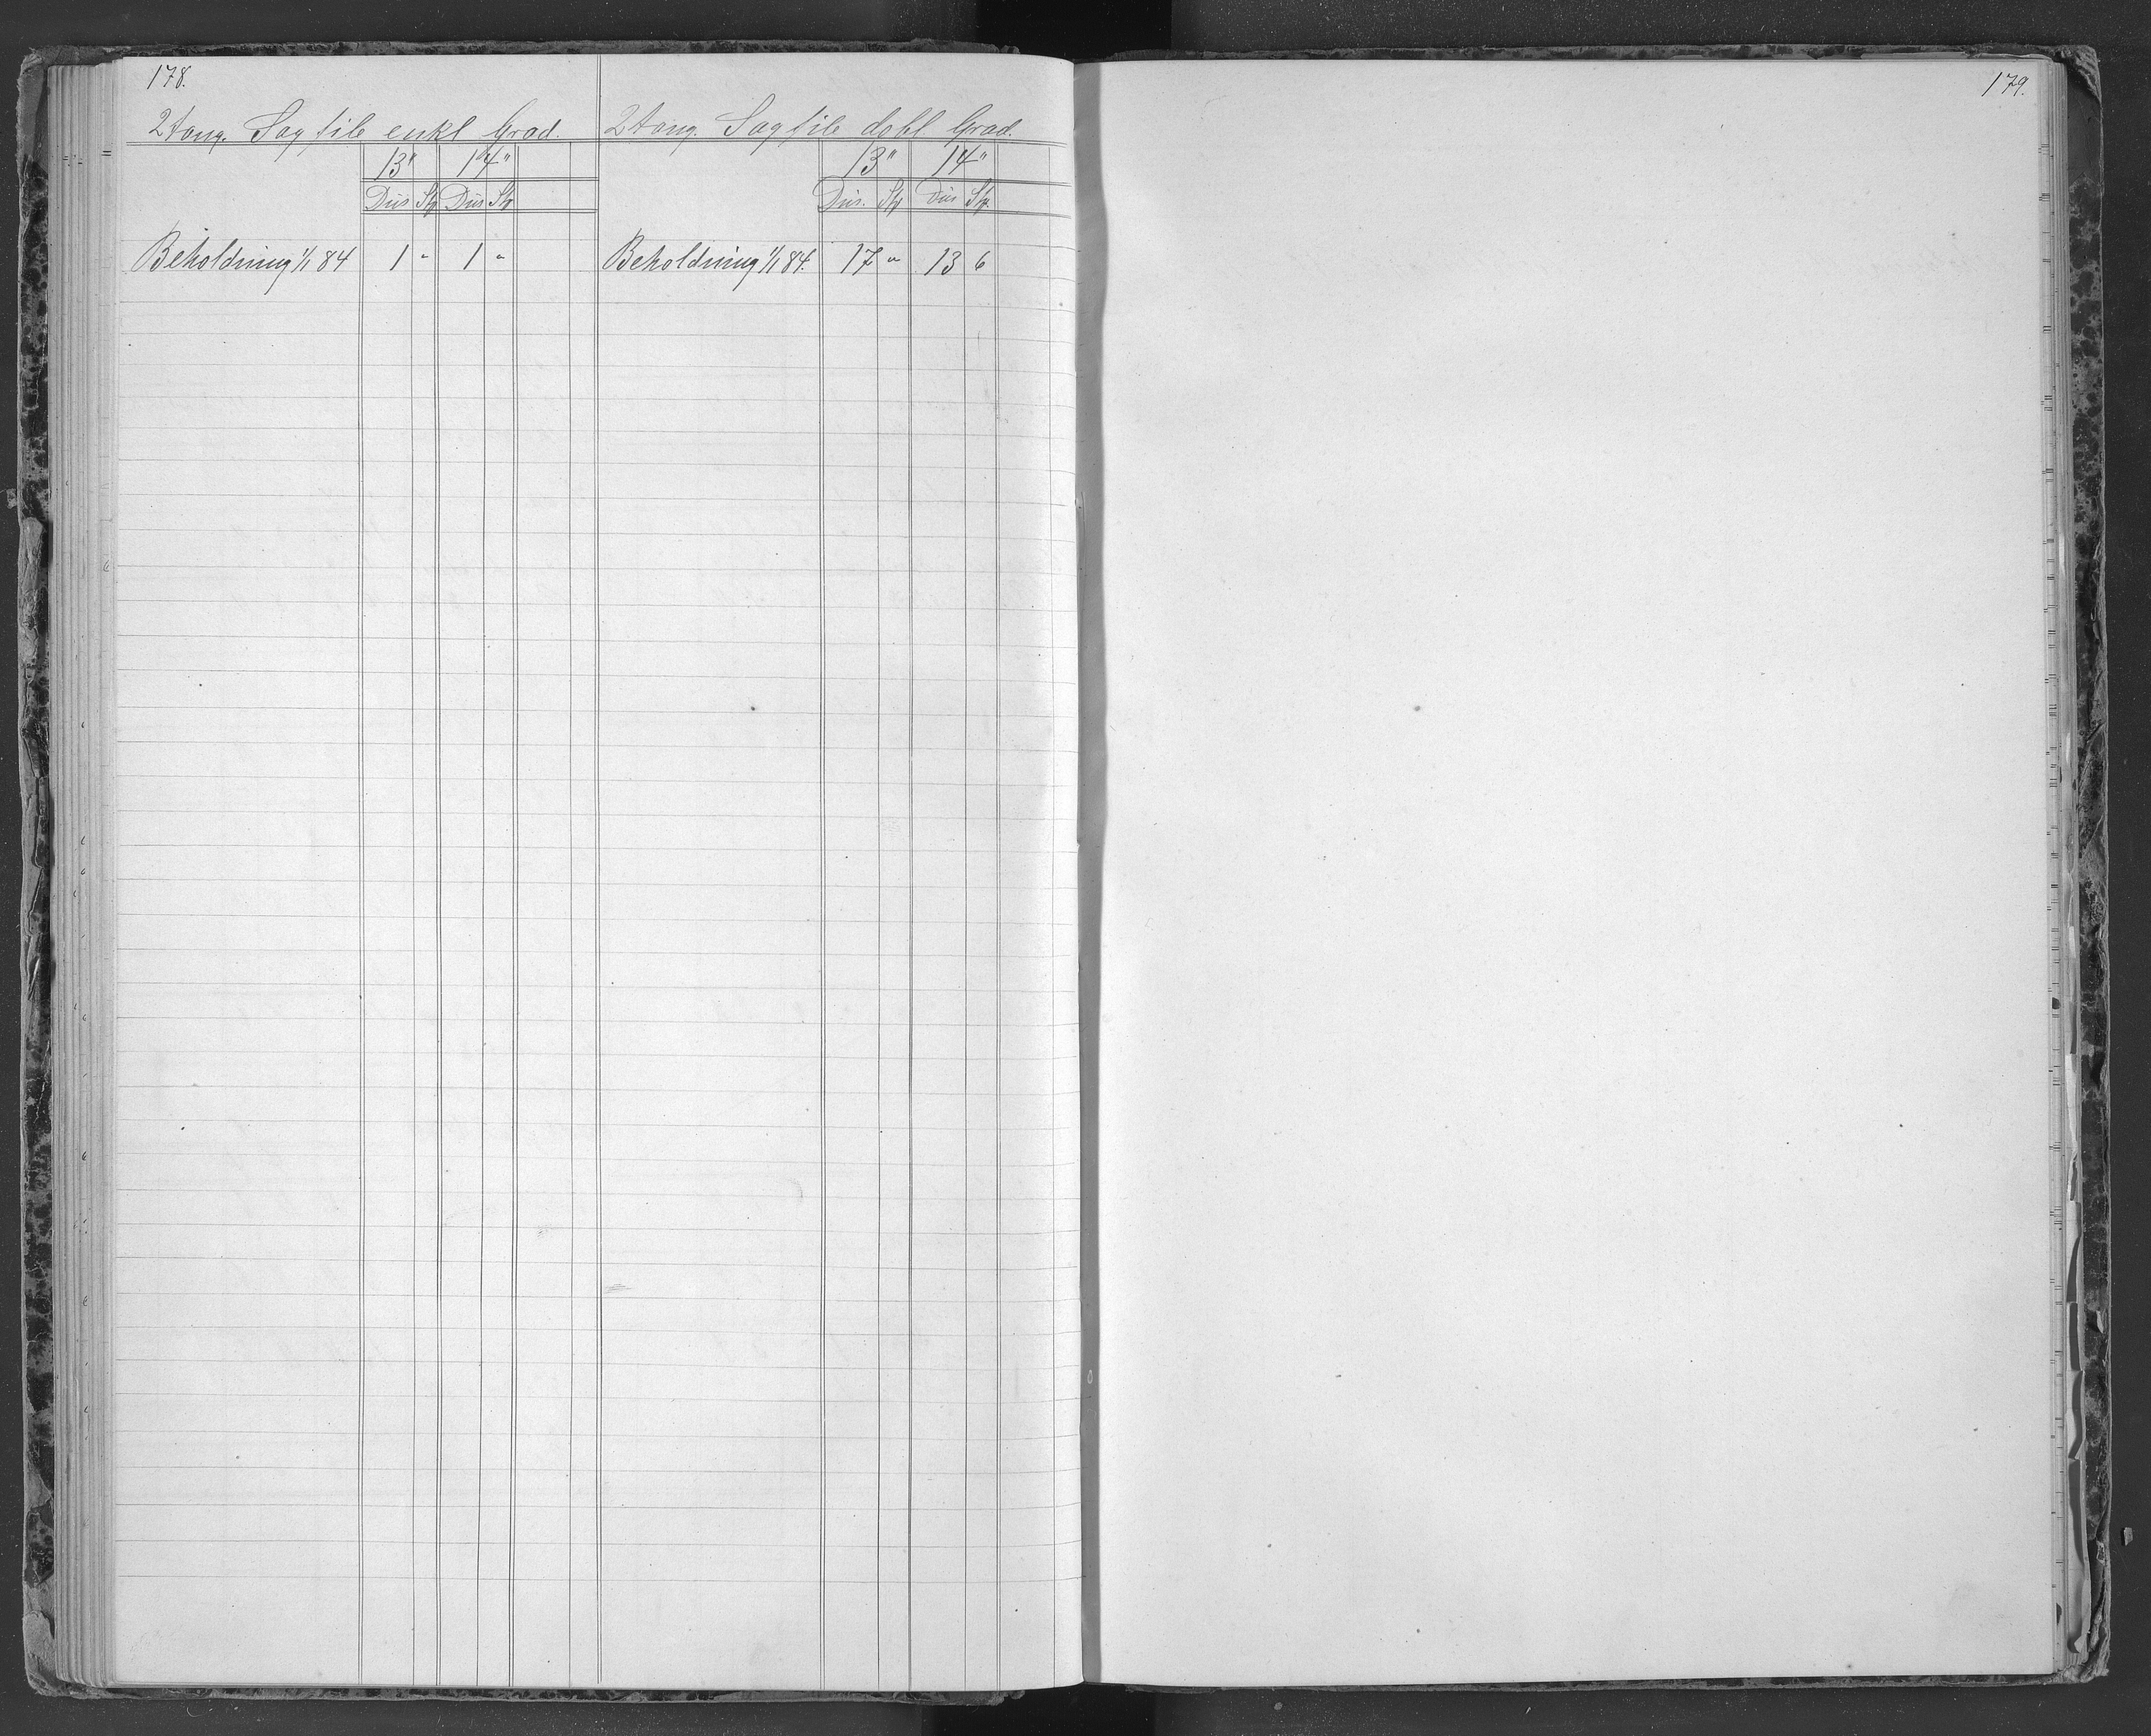 178.
2 tang. Sagfile enkl Grad.
13" 14"
Dus Stp Dus Stp
Beholdning 1/1 84 1 " 1 "
2 tang. Sagfile dobl Grad.
13" 14"
Dus. Stp Dus Stp.
Beholdning 1/1 84. 17 " 13 6
179.